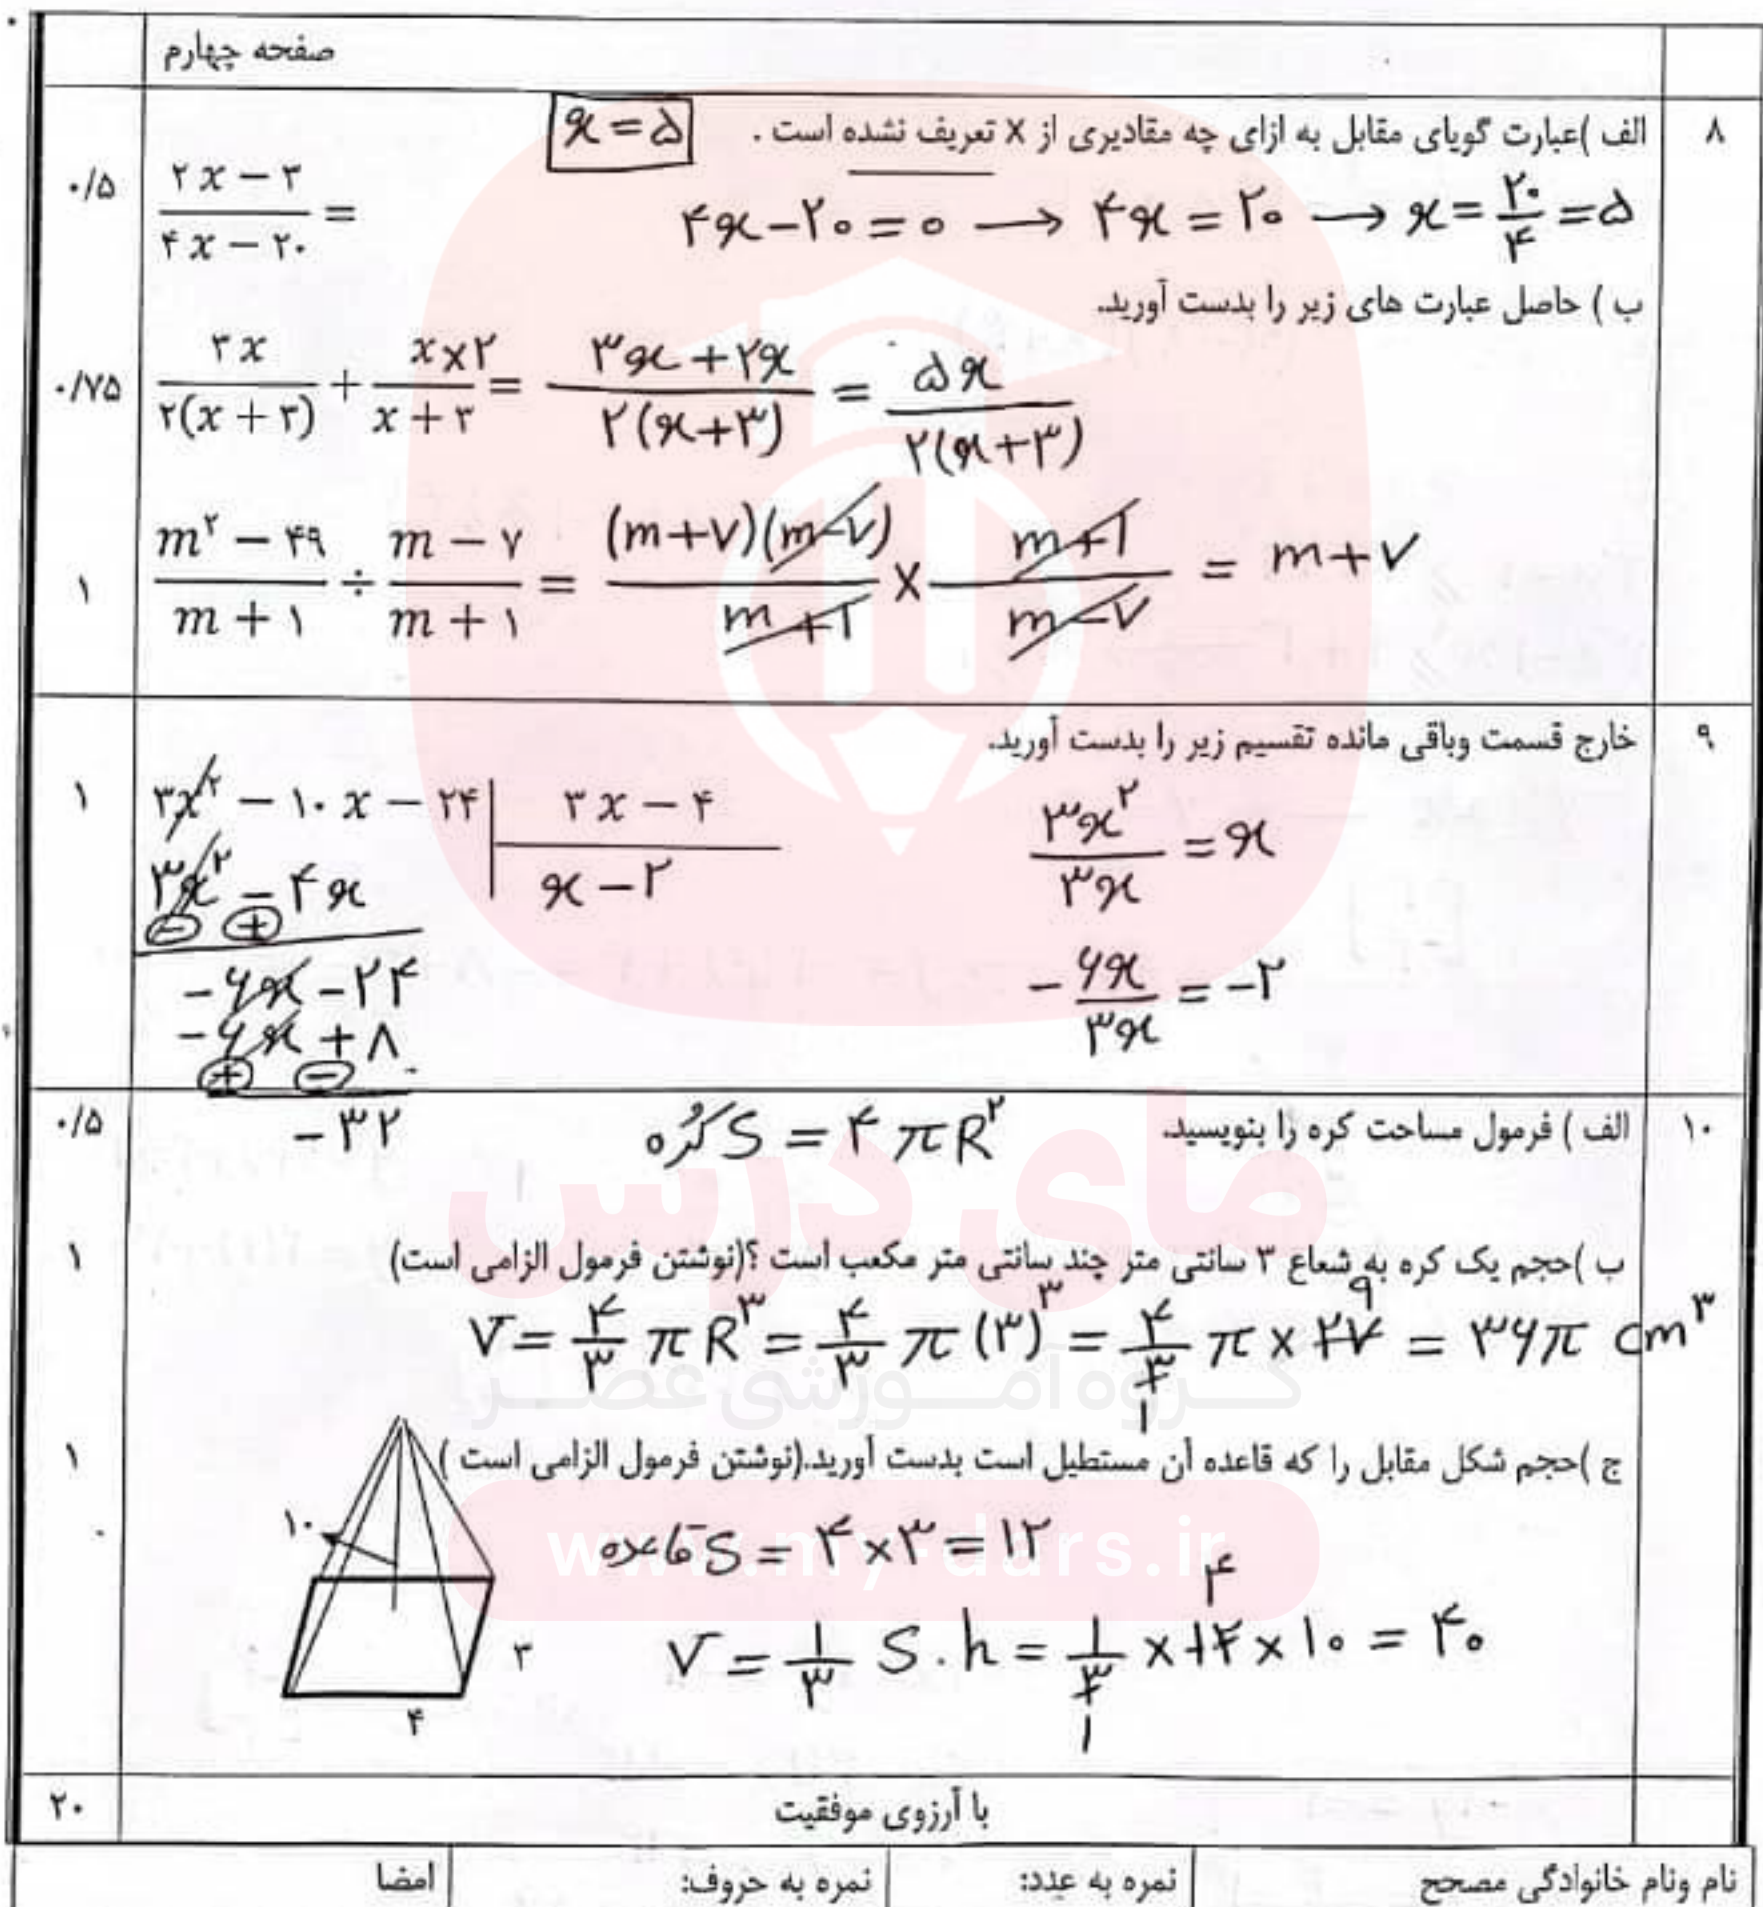 صفحه چهارم
۸ الف )عبارت گویای مقابل به ازای چه مقادیری از X تعریف نشده است . x = ۵
۰/۵ (۲x − ۳)/(۴x − ۲۰) = ۴x − ۲۰ = ۰ → ۴x = ۲۰ → x = ۲۰/۴ = ۵
ب ) حاصل عبارت های زیر را بدست آورید.
۰/۷۵ ۳x/(۲(x + ۳)) + x×۲/(x + ۳) = (۳x + ۲x)/(۲(x+۳)) = ۵x/(۲(x+۳))
۱ (m² − ۴۹)/(m + ۱) ÷ (m − ۷)/(m + ۱) = (m+۷)(m−۷)/(m+۱) × (m+۱)/(m−۷) = m+۷
۹ خارج قسمت وباقی مانده تقسیم زیر را بدست آورید.
۱ ۳x² − ۱۰x − ۲۴ | ۳x − ۴ ۳x²/۳x = x
۳x² − ۴x x − ۲
− +
−۶x − ۲۴ −۶x/۳x = −۲
−۶x + ۸
+ −
−۳۲
۱۰ الف ) فرمول مساحت کره را بنویسید. کُره S = ۴πR² ۰/۵
ب )حجم یک کره به شعاع ۳ سانتی متر چند سانتی متر مکعب است ؟(نوشتن فرمول الزامی است) ۱
V = ۴/۳ πR³ = ۴/۳ π(۳)³ = ۴/۳ π × ۲۷ = ۳۶π cm³
۹
۱
ج )حجم شکل مقابل را که قاعده آن مستطیل است بدست آورید.(نوشتن فرمول الزامی است ) ۱
۱۰
قاعده S = ۴×۳ = ۱۲
V = ۱/۳ S.h = ۱/۳ × ۱۲ × ۱۰ = ۴۰
۴
۱
۳
۴
مای درس
گروه آموزشی عصر
www.my-dars.ir
با آرزوی موفقیت ۲۰
نام ونام خانوادگی مصحح نمره به عدد: نمره به حروف: امضا